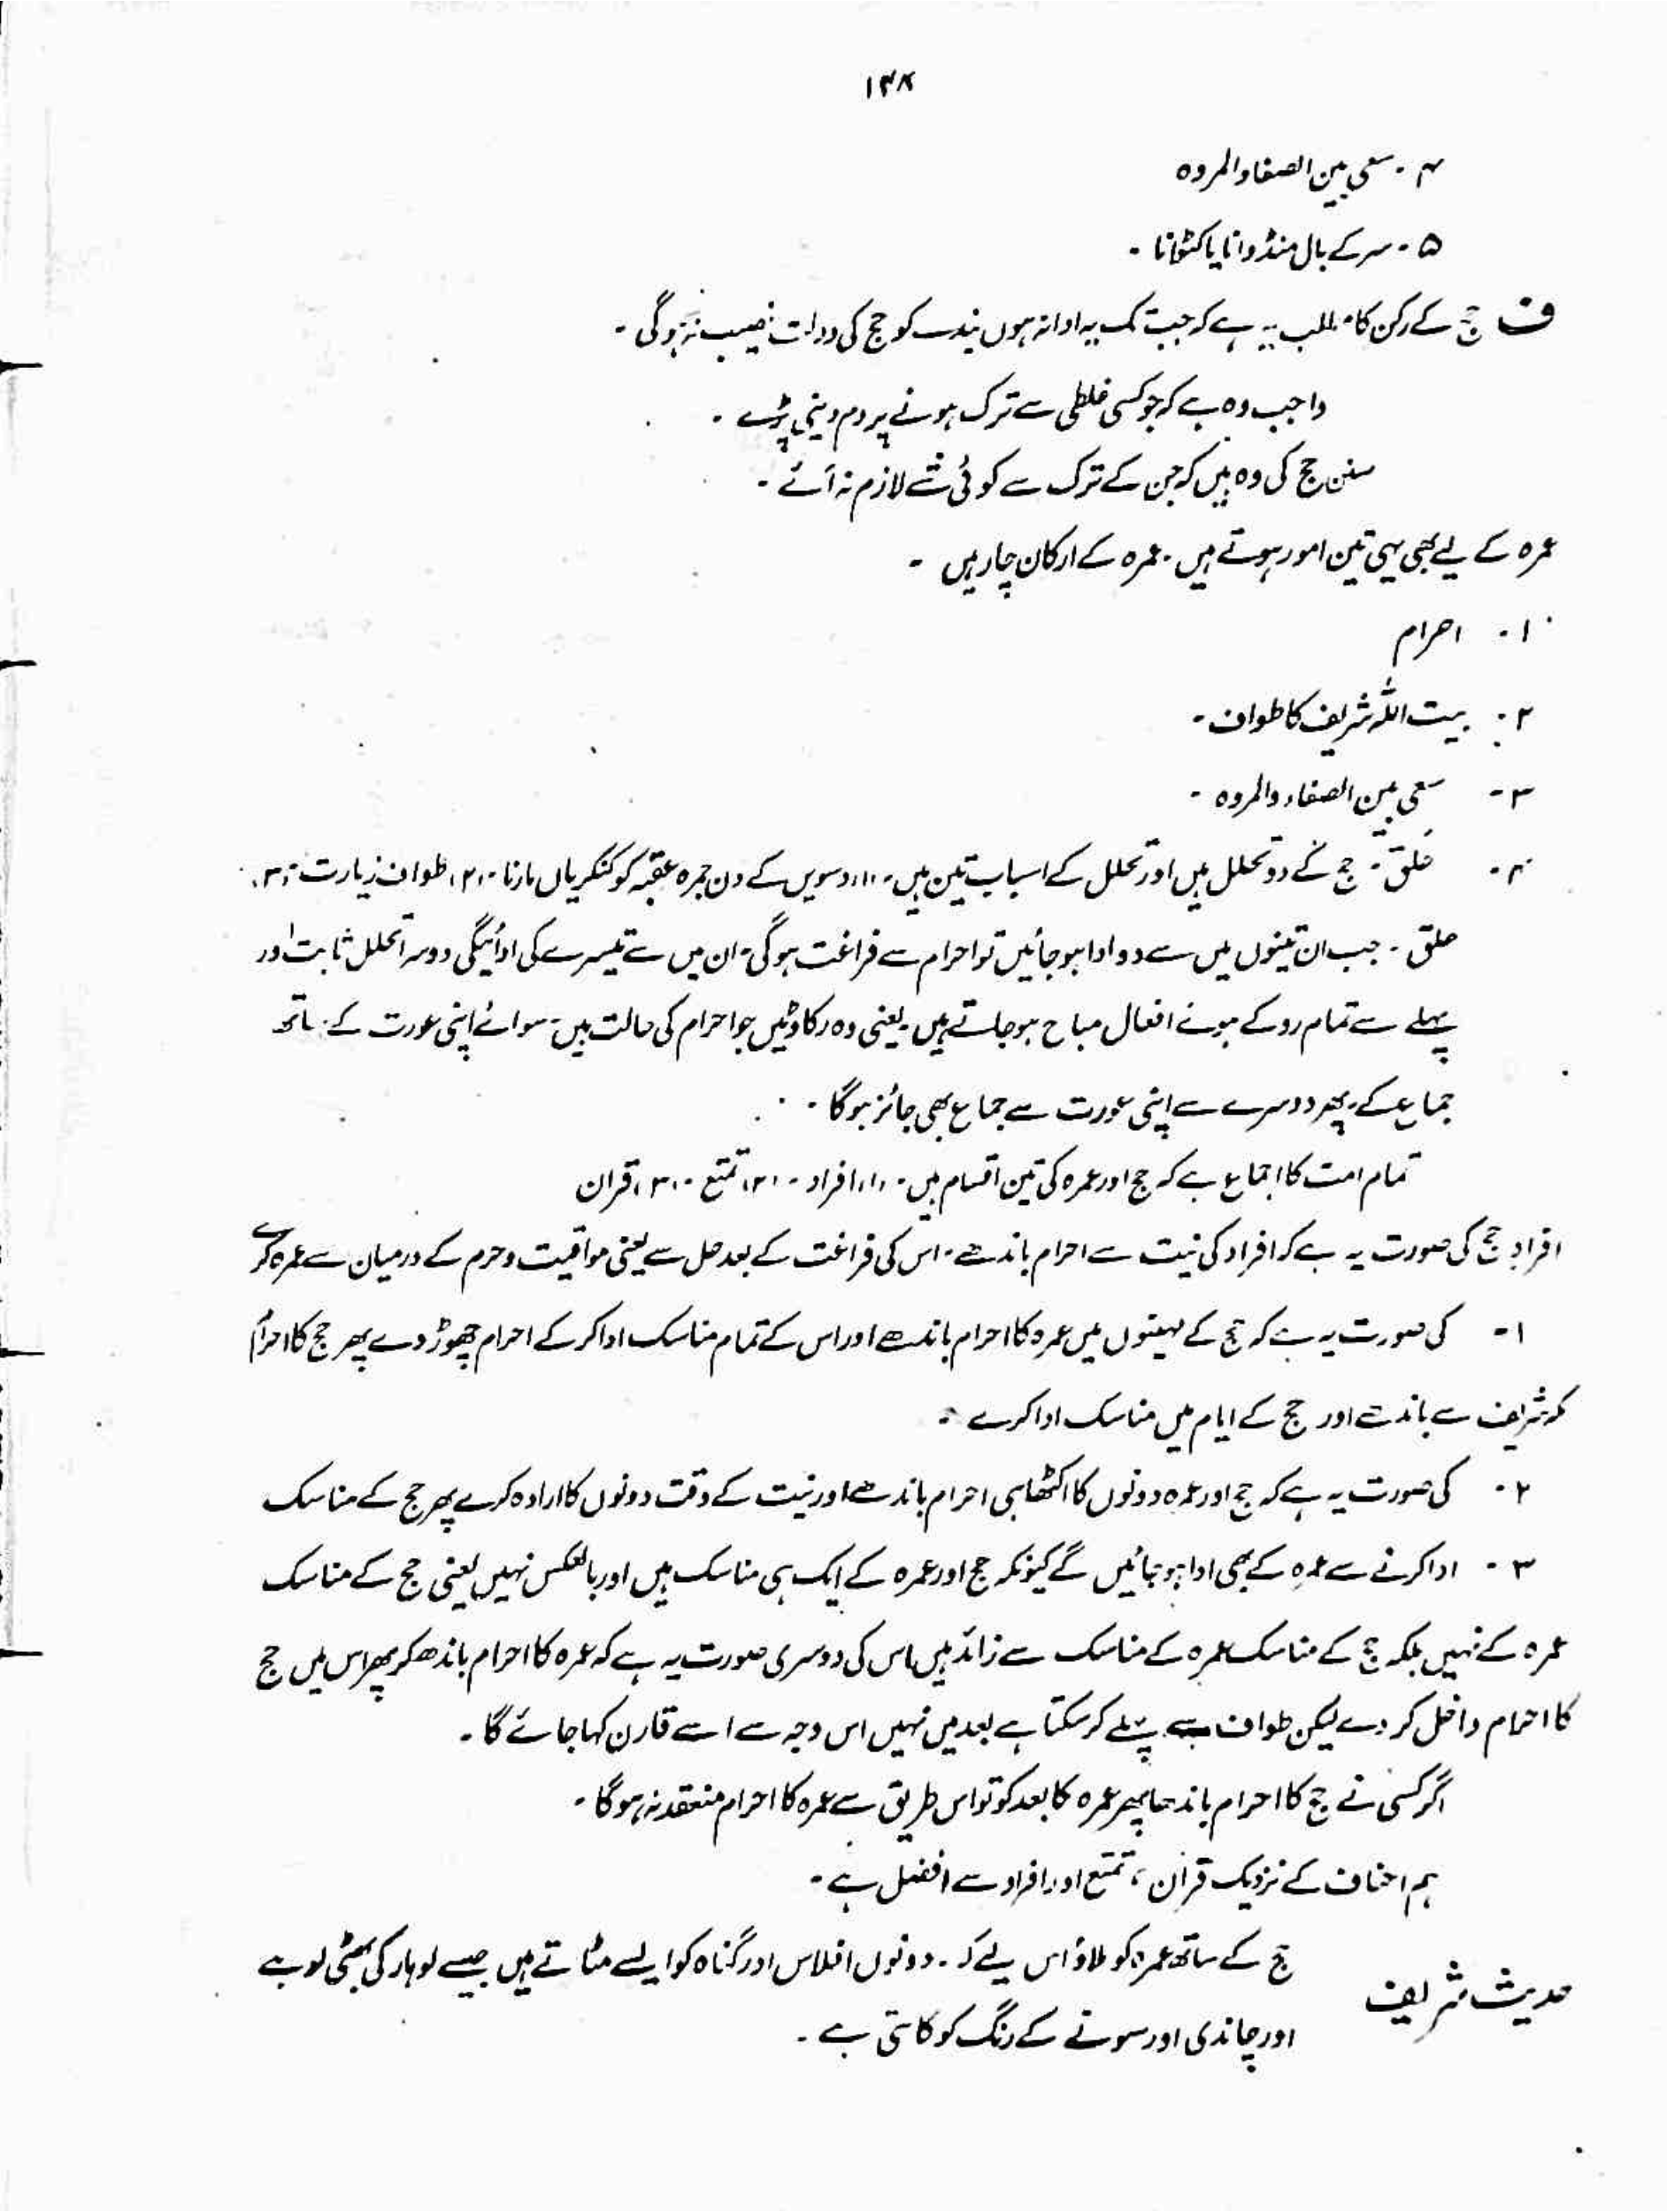 ۱۴۸
۴ - سعی بین الصفا والمروہ
۵ - سر کے بال منڈوانا یا کٹوانا -
ف حج کے رکن کا مطلب یہ ہے کہ جب تک یہ ادا نہ ہوں بندے کو حج کی دولت نصیب نہ ہوگی -
واجب وہ ہے کہ جو کسی غلطی سے ترک ہونے پر دم دینی پڑے -
سنن حج کی وہ ہیں کہ جن کے ترک سے کوئی شے لازم نہ آئے -
عمرہ کے لیے بھی یہی تین امور ہوتے ہیں - عمرہ کے ارکان چار ہیں -
۱ - احرام
۲ - بیت اللہ شریف کا طواف -
۳ - سعی بین الصفاء والمروہ -
۴ - حلق - حج کے دو تحلل ہیں اور تحلل کے اسباب تین ہیں - (۱) دسویں کے دن جمرہ عقبہ کو کنکریاں مارنا - (۲) طواف زیارت - (۳)
حلق - جب ان تینوں میں سے دو ادا ہو جائیں تو احرام سے فراغت ہوگی - ان میں سے تیسرے کی ادائیگی دوسرا تحلل ثابت اور
پہلے سے تمام روکے ہوئے افعال مباح ہو جاتے ہیں - یعنی وہ رکاوٹیں جو احرام کی حالت میں - سوائے اپنی عورت کے ساتھ
جماع کے - پھر دوسرے سے اپنی عورت سے جماع بھی جائز ہوگا -
تمام امت کا اجماع ہے کہ حج اور عمرہ کی تین اقسام ہیں - (۱) افراد - (۲) تمتع - (۳) قران
افراد حج کی صورت یہ ہے کہ افراد کی نیت سے احرام باندھے - اس کی فراغت کے بعد حل سے یعنی مواقیت و حرم کے درمیان سے عمرہ کرے
۱ - کی صورت یہ ہے کہ حج کے مہینوں میں عمرہ کا احرام باندھے اور اس کے تمام مناسک ادا کر کے احرام چھوڑ دے پھر حج کا احرام
مکہ شریف سے باندھے اور حج کے ایام میں مناسک ادا کرے -
۲ - کی صورت یہ ہے کہ حج اور عمرہ دونوں کا اکٹھا ہی احرام باندھے اور نیت کے وقت دونوں کا ارادہ کرے پھر حج کے مناسک
۳ - ادا کرنے سے عمرہ کے بھی ادا ہو جائیں گے کیونکہ حج اور عمرہ کے ایک ہی مناسک ہیں اور بالعکس نہیں یعنی حج کے مناسک
عمرہ کے نہیں بلکہ حج کے مناسک عمرہ کے مناسک سے زائد ہیں اس کی دوسری صورت یہ ہے کہ عمرہ کا احرام باندھ کر پھر اس میں حج
کا احرام داخل کر دے لیکن طواف سے پہلے کر سکتا ہے بعد میں نہیں اس وجہ سے اسے قارن کہا جائے گا -
اگر کسی نے حج کا احرام باندھا پھر عمرہ کا بعد کو تو اس طریق سے عمرہ کا احرام منعقد نہ ہوگا -
ہم احناف کے نزدیک قران ، تمتع اور افراد سے افضل ہے -
حدیث شریف حج کے ساتھ عمرہ کو ملاؤ اس لیے کہ - دونوں افلاس اور گناہ کو ایسے مٹاتے ہیں جیسے لوہار کی بھٹی لوہے
اور چاندی اور سونے کے زنگ کو کاٹتی ہے -